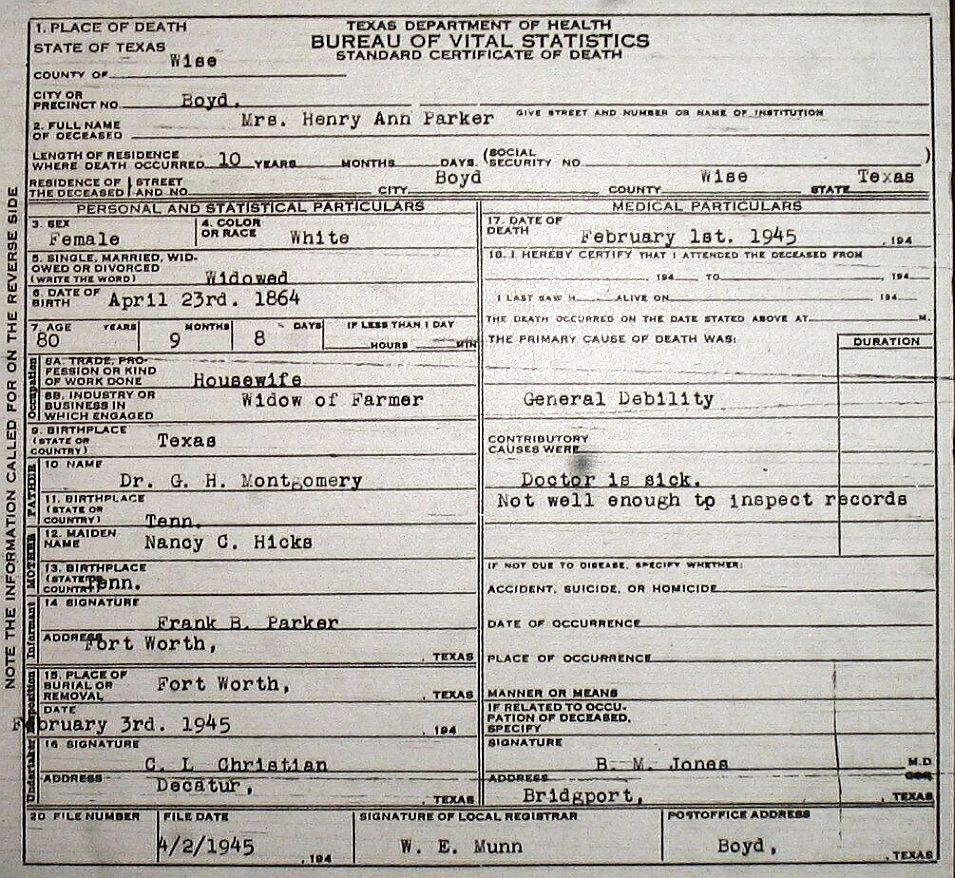 TEXAS DEPARTMENT OF HEALTH
BUREAU OF VITAL STATISTICS
STANDARD CERTIFICATE OF DEATH
1. PLACE OF DEATH
STATE OF TEXAS
COUNTY OF Wise
CITY OR
PRECINCT NO. Boyd,
GIVE STREET AND NUMBER OR NAME OF INSTITUTION
2. FULL NAME
OF DECEASED Mrs. Henry Ann Parker
LENGTH OF RESIDENCE
WHERE DEATH OCCURRED 10 YEARS MONTHS DAYS. (SOCIAL
SECURITY NO )
RESIDENCE OF STREET
THE DECEASED AND NO. CITY Boyd COUNTY Wise STATE Texas
PERSONAL AND STATISTICAL PARTICULARS
3. SEX
Female
4. COLOR
OR RACE White
5. SINGLE, MARRIED, WID-
OWED OR DIVORCED
(WRITE THE WORD) Widowed
6. DATE OF
BIRTH April 23rd. 1864
7. AGE YEARS MONTHS DAYS IF LESS THAN 1 DAY
80 9 8 HOURS MIN
Occupation
8A. TRADE, PRO-
FESSION OR KIND
OF WORK DONE Housewife
8B. INDUSTRY OR
BUSINESS IN
WHICH ENGAGED Widow of Farmer
9. BIRTHPLACE
(STATE OR
COUNTRY) Texas
FATHER
10 NAME
Dr. G. H. Montgomery
11. BIRTHPLACE
(STATE OR
COUNTRY) Tenn.
MOTHER
12. MAIDEN
NAME Nancy C. Hicks
13. BIRTHPLACE
(STATE OR
COUNTRY) Tenn.
Informant
14 SIGNATURE
Frank B. Parker
ADDRESS Fort Worth,
, TEXAS
15. PLACE OF
BURIAL OR
REMOVAL, Fort Worth, , TEXAS
DATE
February 3rd. 1945 , 194
Undertaker
16 SIGNATURE
C. L Christian
ADDRESS Decatur,
, TEXAS
MEDICAL PARTICULARS
17. DATE OF
DEATH February 1st. 1945 , 194
18. I HEREBY CERTIFY THAT I ATTENDED THE DECEASED FROM
, 194 TO , 194
I LAST SAW H ALIVE ON 194
THE DEATH OCCURRED ON THE DATE STATED ABOVE AT M.
THE PRIMARY CAUSE OF DEATH WAS: DURATION
General Debility
CONTRIBUTORY
CAUSES WERE
Doctor is sick.
Not well enough to inspect records
IF NOT DUE TO DISEASE, SPECIFY WHETHER:
ACCIDENT, SUICIDE, OR HOMICIDE
DATE OF OCCURRENCE
PLACE OF OCCURRENCE
MANNER OR MEANS
IF RELATED TO OCCU-
PATION OF DECEASED,
SPECIFY
SIGNATURE
B. M. Jones M.D.
ADDRESS
Bridgport, , TEXAS
20 FILE NUMBER
FILE DATE
4/2/1945 , 194
SIGNATURE OF LOCAL REGISTRAR
W. E. Munn
POSTOFFICE ADDRESS
Boyd, , TEXAS
NOTE THE INFORMATION CALLED FOR ON THE REVERSE SIDE